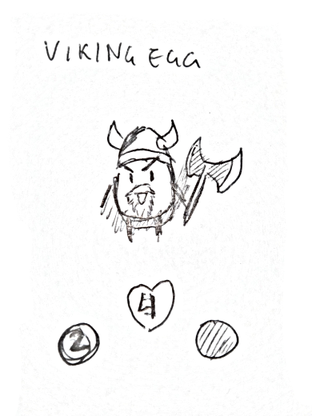 VIKING EGG
4
2